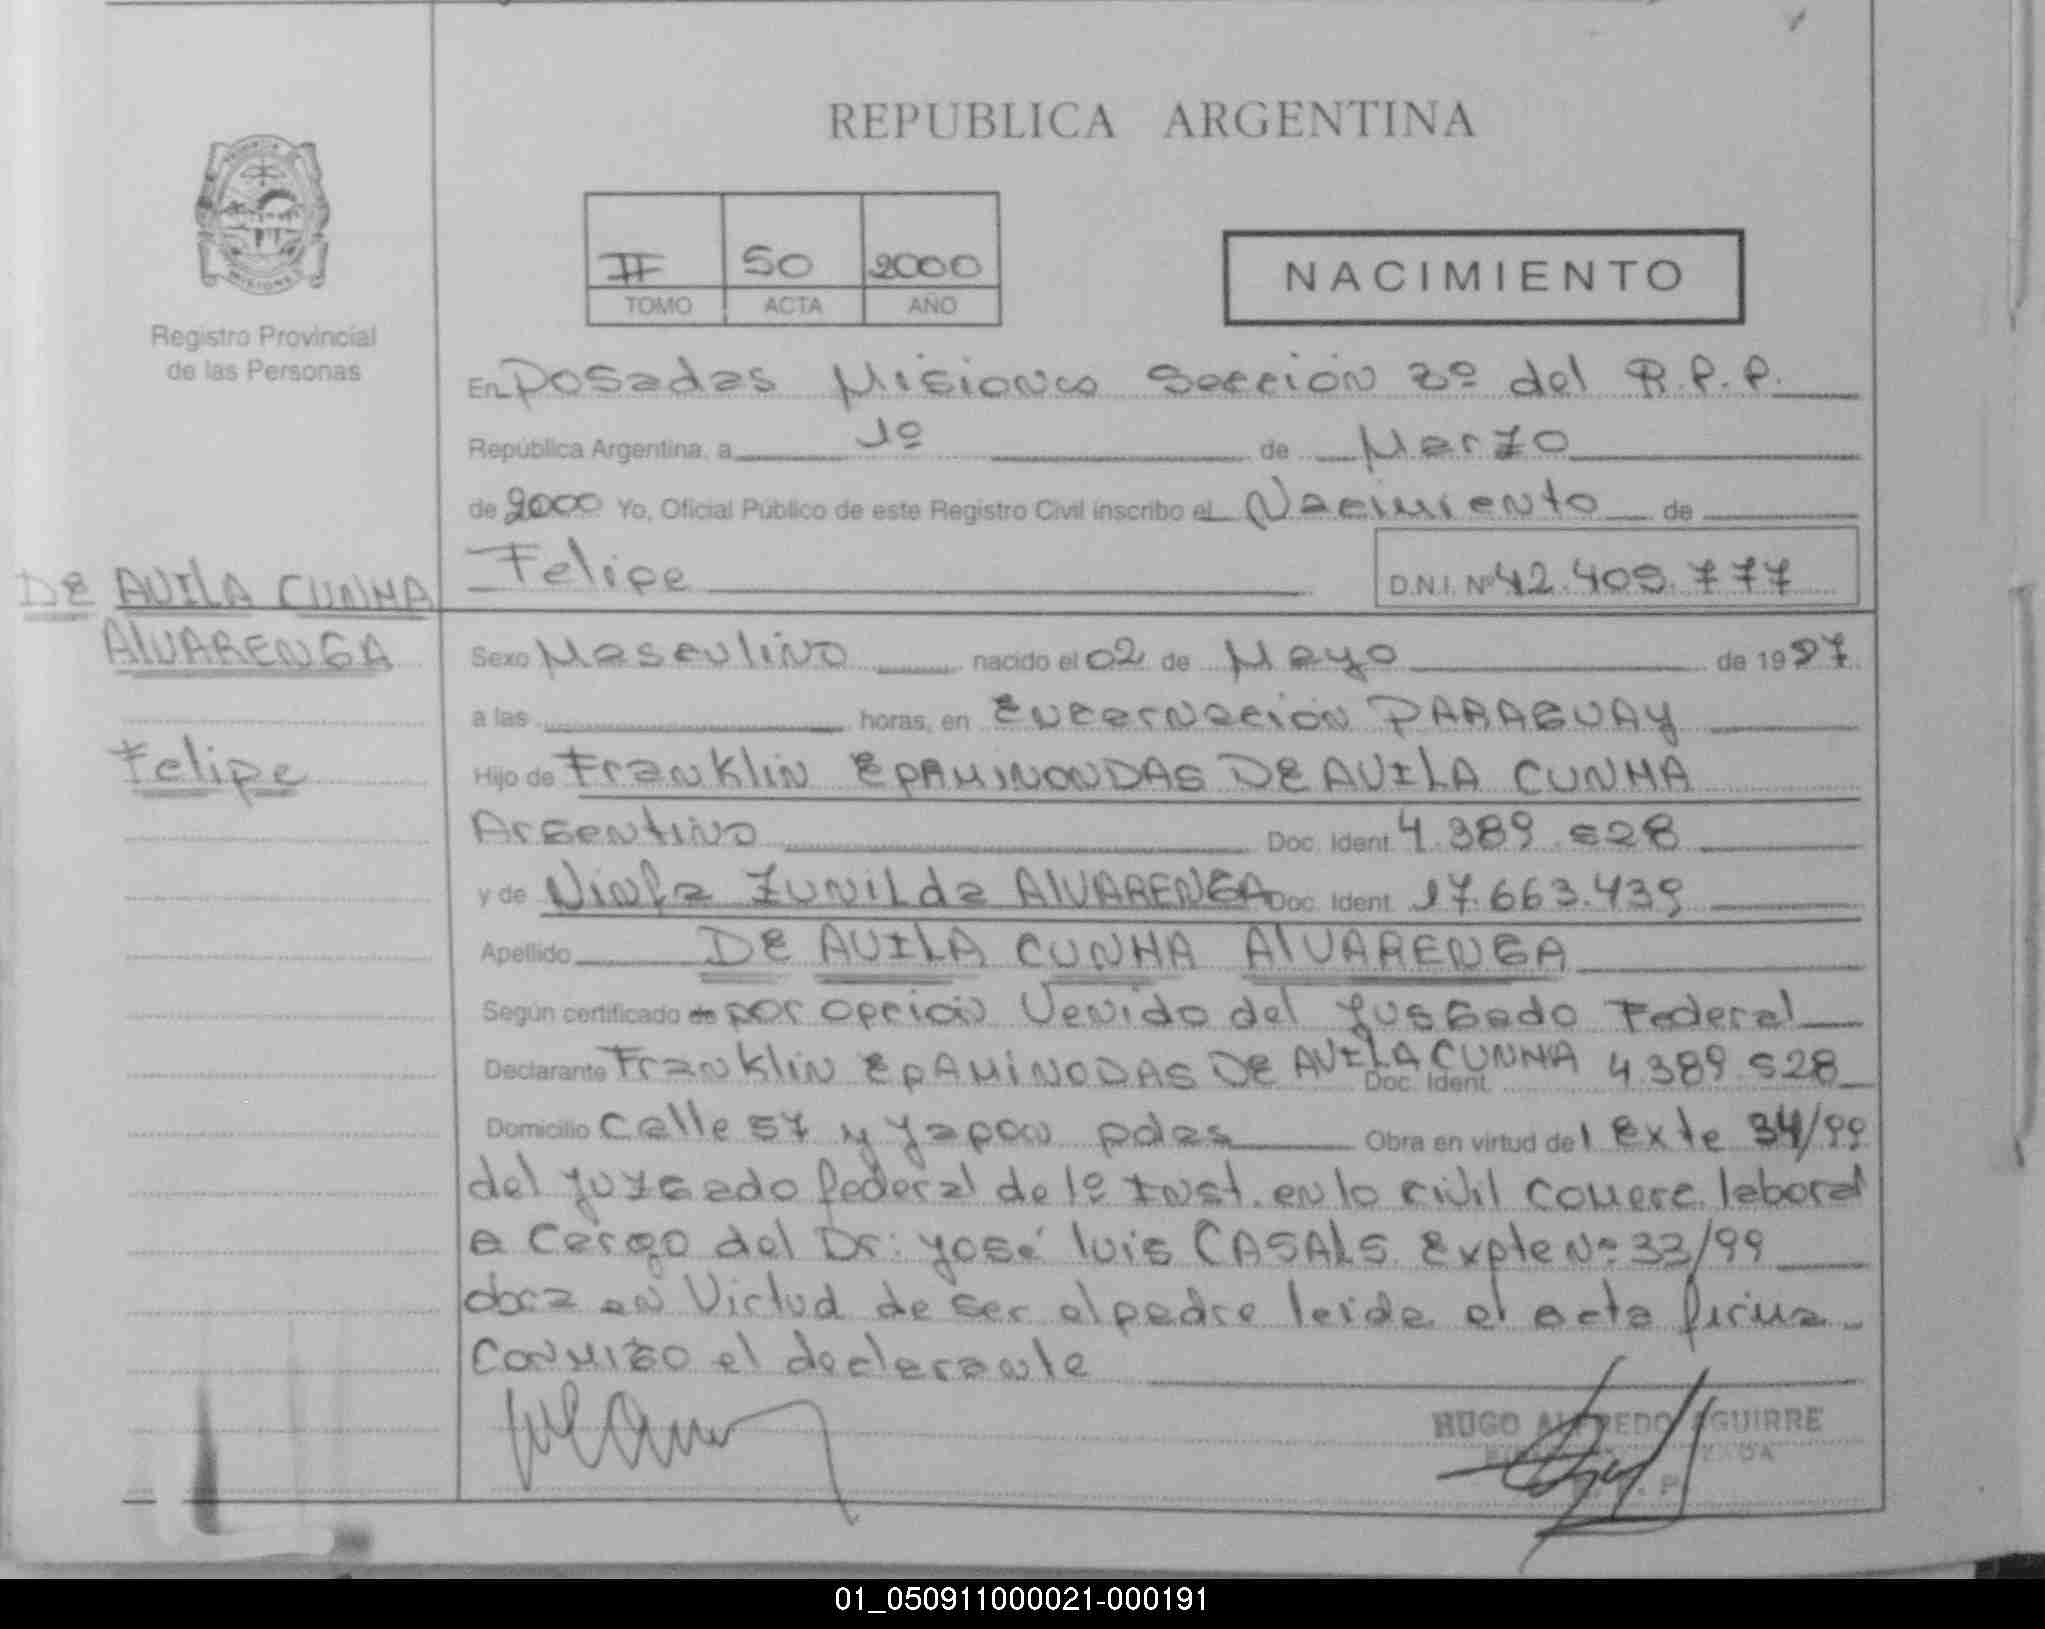 REPUBLICA ARGENTINA
II 50 2000
TOMO ACTA AÑO
NACIMIENTO
Registro Provincial
de las Personas
En Posadas Misiones Sección 2º del R.P.P.
República Argentina, a 1º de Marzo
de 2000 Yo, Oficial Público de este Registro Civil inscribo el Nacimiento de
Felipe D.N.I. Nº 42.409.777
DE AVILA CUNHA
ALVARENGA
Felipe
Sexo Masculino nacido el 02 de Mayo de 1997
a las horas, en Encarnación PARAGUAY
Hijo de Franklin EPAMINONDAS DE AVILA CUNHA
Argentino Doc. Ident. 4.389.528
y de Ninfa Zunilda ALVARENGA Doc. Ident. 17.663.439
Apellido DE AVILA CUNHA ALVARENGA
Según certificado de por opción Venido del Jusgado Federal
Declarante Franklin EPAMINODAS DE AVILA CUNHA Doc. Ident. 4.389.528
Domicilio Calle 57 y Japon pdas Obra en virtud del Exte 34/99
del Juzgado federal de 1º Inst. en lo civil Comerc. laboral
a Cargo del Dr: José luis CASALS. Expte Nº 33/99
obra en Virtud de ser el padre leida el acta firma
Conmigo el declarante
HUGO ALFREDO AGUIRRE
01_050911000021-000191